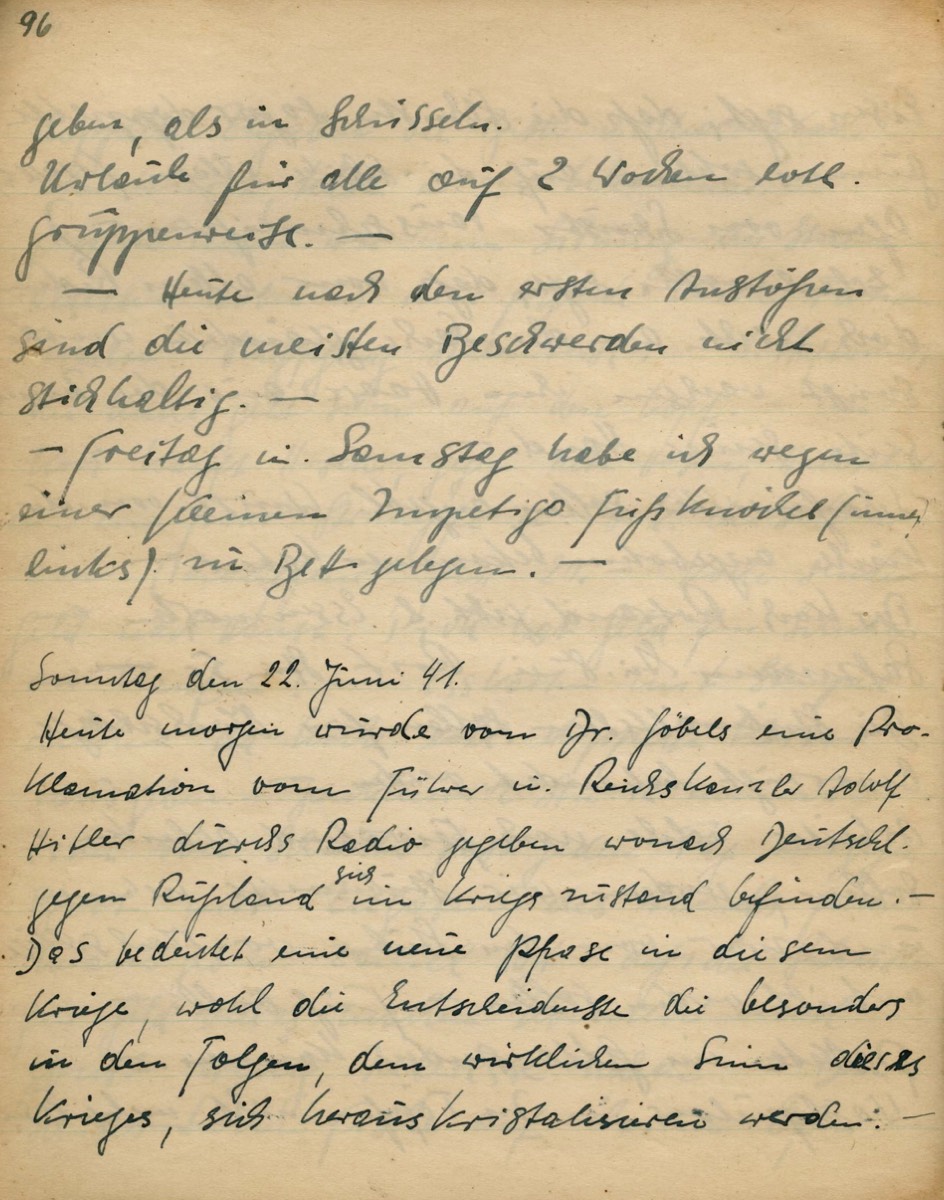 96
geben, als in Schüsseln.
Urlaub für alle auf 2 Wochen evtl.
gruppenweise. —
— Heute nach den ersten Anstößen
sind die meisten Beschwerden nicht
stichhaltig. —
— Freitag u. Samstag habe ich wegen
einer kleinen Impetigo Fußknöchel (innen
links) zu Bett gelegen. —
Sonntag den 22. Juni 41.
Heute morgen wurde vom Dr. Göbels eine Pro-
klamation vom Führer u. Reichskanzler Adolf
Hitler durchs Radio gegeben wonach Deutschl.
gegen Rußland sich im Kriegszustand befinden. —
Das bedeutet eine neue Phase in diesem
Kriege, wohl die Entscheidenste die besonders
in den Folgen, dem wirklichen Sinn dieses
Krieges, sich herauskristalisieren werden. —